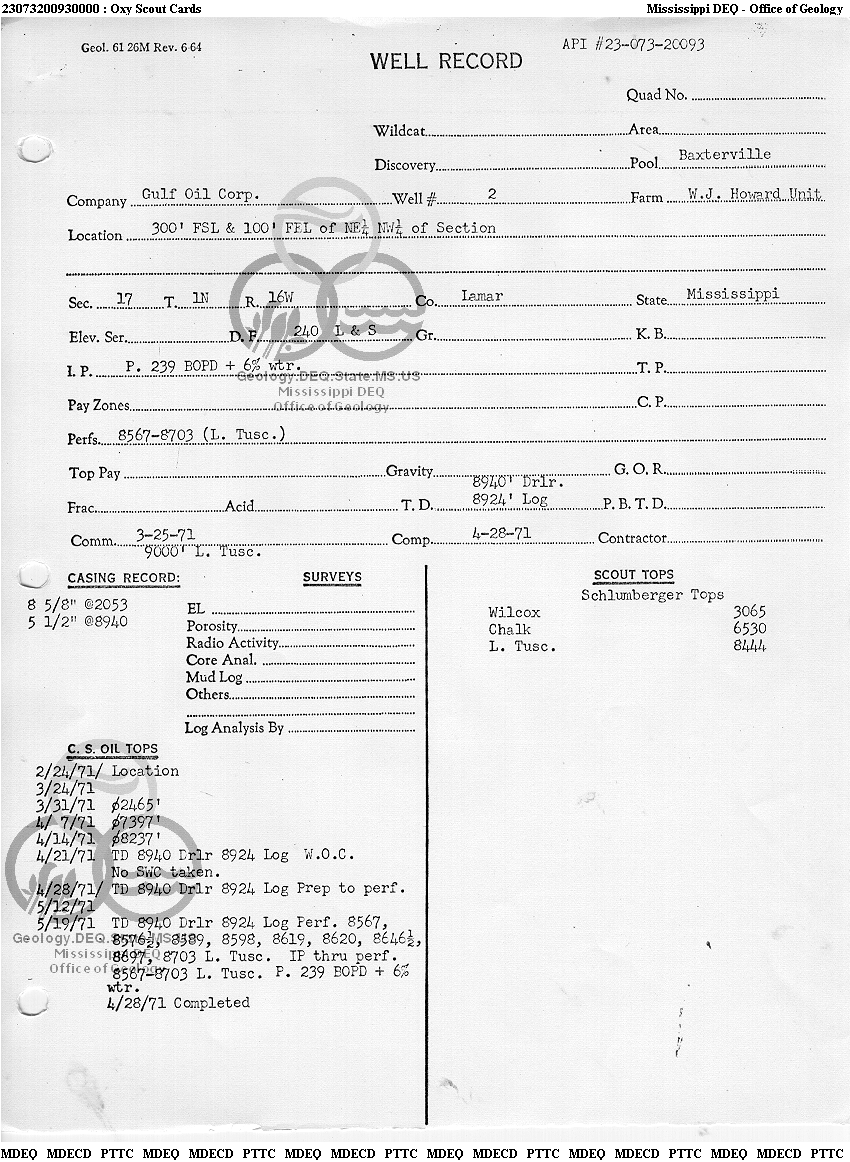 23073200930000 : Oxy Scout Cards Mississippi DEQ - Office of Geology
Geol. 61 26M Rev. 6 64 API #23-073-20093
WELL RECORD
Quad No.
Wildcat Area
Discovery Pool Baxterville
Company Gulf Oil Corp. Well # 2 Farm W.J. Howard Unit
Location 300' FSL & 100' FEL of NE¼ NW¼ of Section
Sec. 17 T. 1N R. 16W Co. Lamar State Mississippi
Elev. Ser. D. F. 240 L & S Gr. K. B.
I. P. P. 239 BOPD + 6% wtr. T. P.
Geology.DEQ.State.MS.US
Mississippi DEQ
Office of Geology
Pay Zones C. P.
Perfs. 8567-8703 (L. Tusc.)
Top Pay Gravity G. O. R.
8940' Drlr.
Frac. Acid T. D. 8924' Log P. B. T. D.
Comm. 3-25-71 Comp. 4-28-71 Contractor
9000' L. Tusc.
CASING RECORD:
8 5/8" @2053
5 1/2" @8940
SURVEYS
EL
Porosity
Radio Activity
Core Anal.
Mud Log
Others
Log Analysis By
SCOUT TOPS
Schlumberger Tops
Wilcox 3065
Chalk 6530
L. Tusc. 8444
C. S. OIL TOPS
2/24/71/ Location
3/24/71
3/31/71 ∅2465'
4/ 7/71 ∅7397'
4/14/71 ∅8237'
4/21/71 TD 8940 Drlr 8924 Log W.O.C.
No SWC taken.
4/28/71/ TD 8940 Drlr 8924 Log Prep to perf.
5/12/71
5/19/71 TD 8940 Drlr 8924 Log Perf. 8567,
8576½, 8589, 8598, 8619, 8620, 8646½,
8697, 8703 L. Tusc. IP thru perf.
8567-8703 L. Tusc. P. 239 BOPD + 6%
wtr.
4/28/71 Completed
Geology.DEQ.State.MS.US
Mississippi DEQ
Office of Geology
MDEQ MDECD PTTC MDEQ MDECD PTTC MDEQ MDECD PTTC MDEQ MDECD PTTC MDEQ MDECD PTTC MDEQ MDECD PTTC